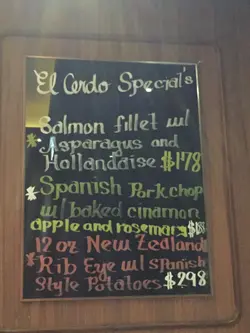 El Cerdo Special's
Salmon fillet w/
* Asparagus and
Hollandaise $178
* Spanish Pork chop
w/ baked cinamon
apple and rosemary $188
12 oz New Zealand
* Rib Eye w/ Spanish
Style Potatoes $298